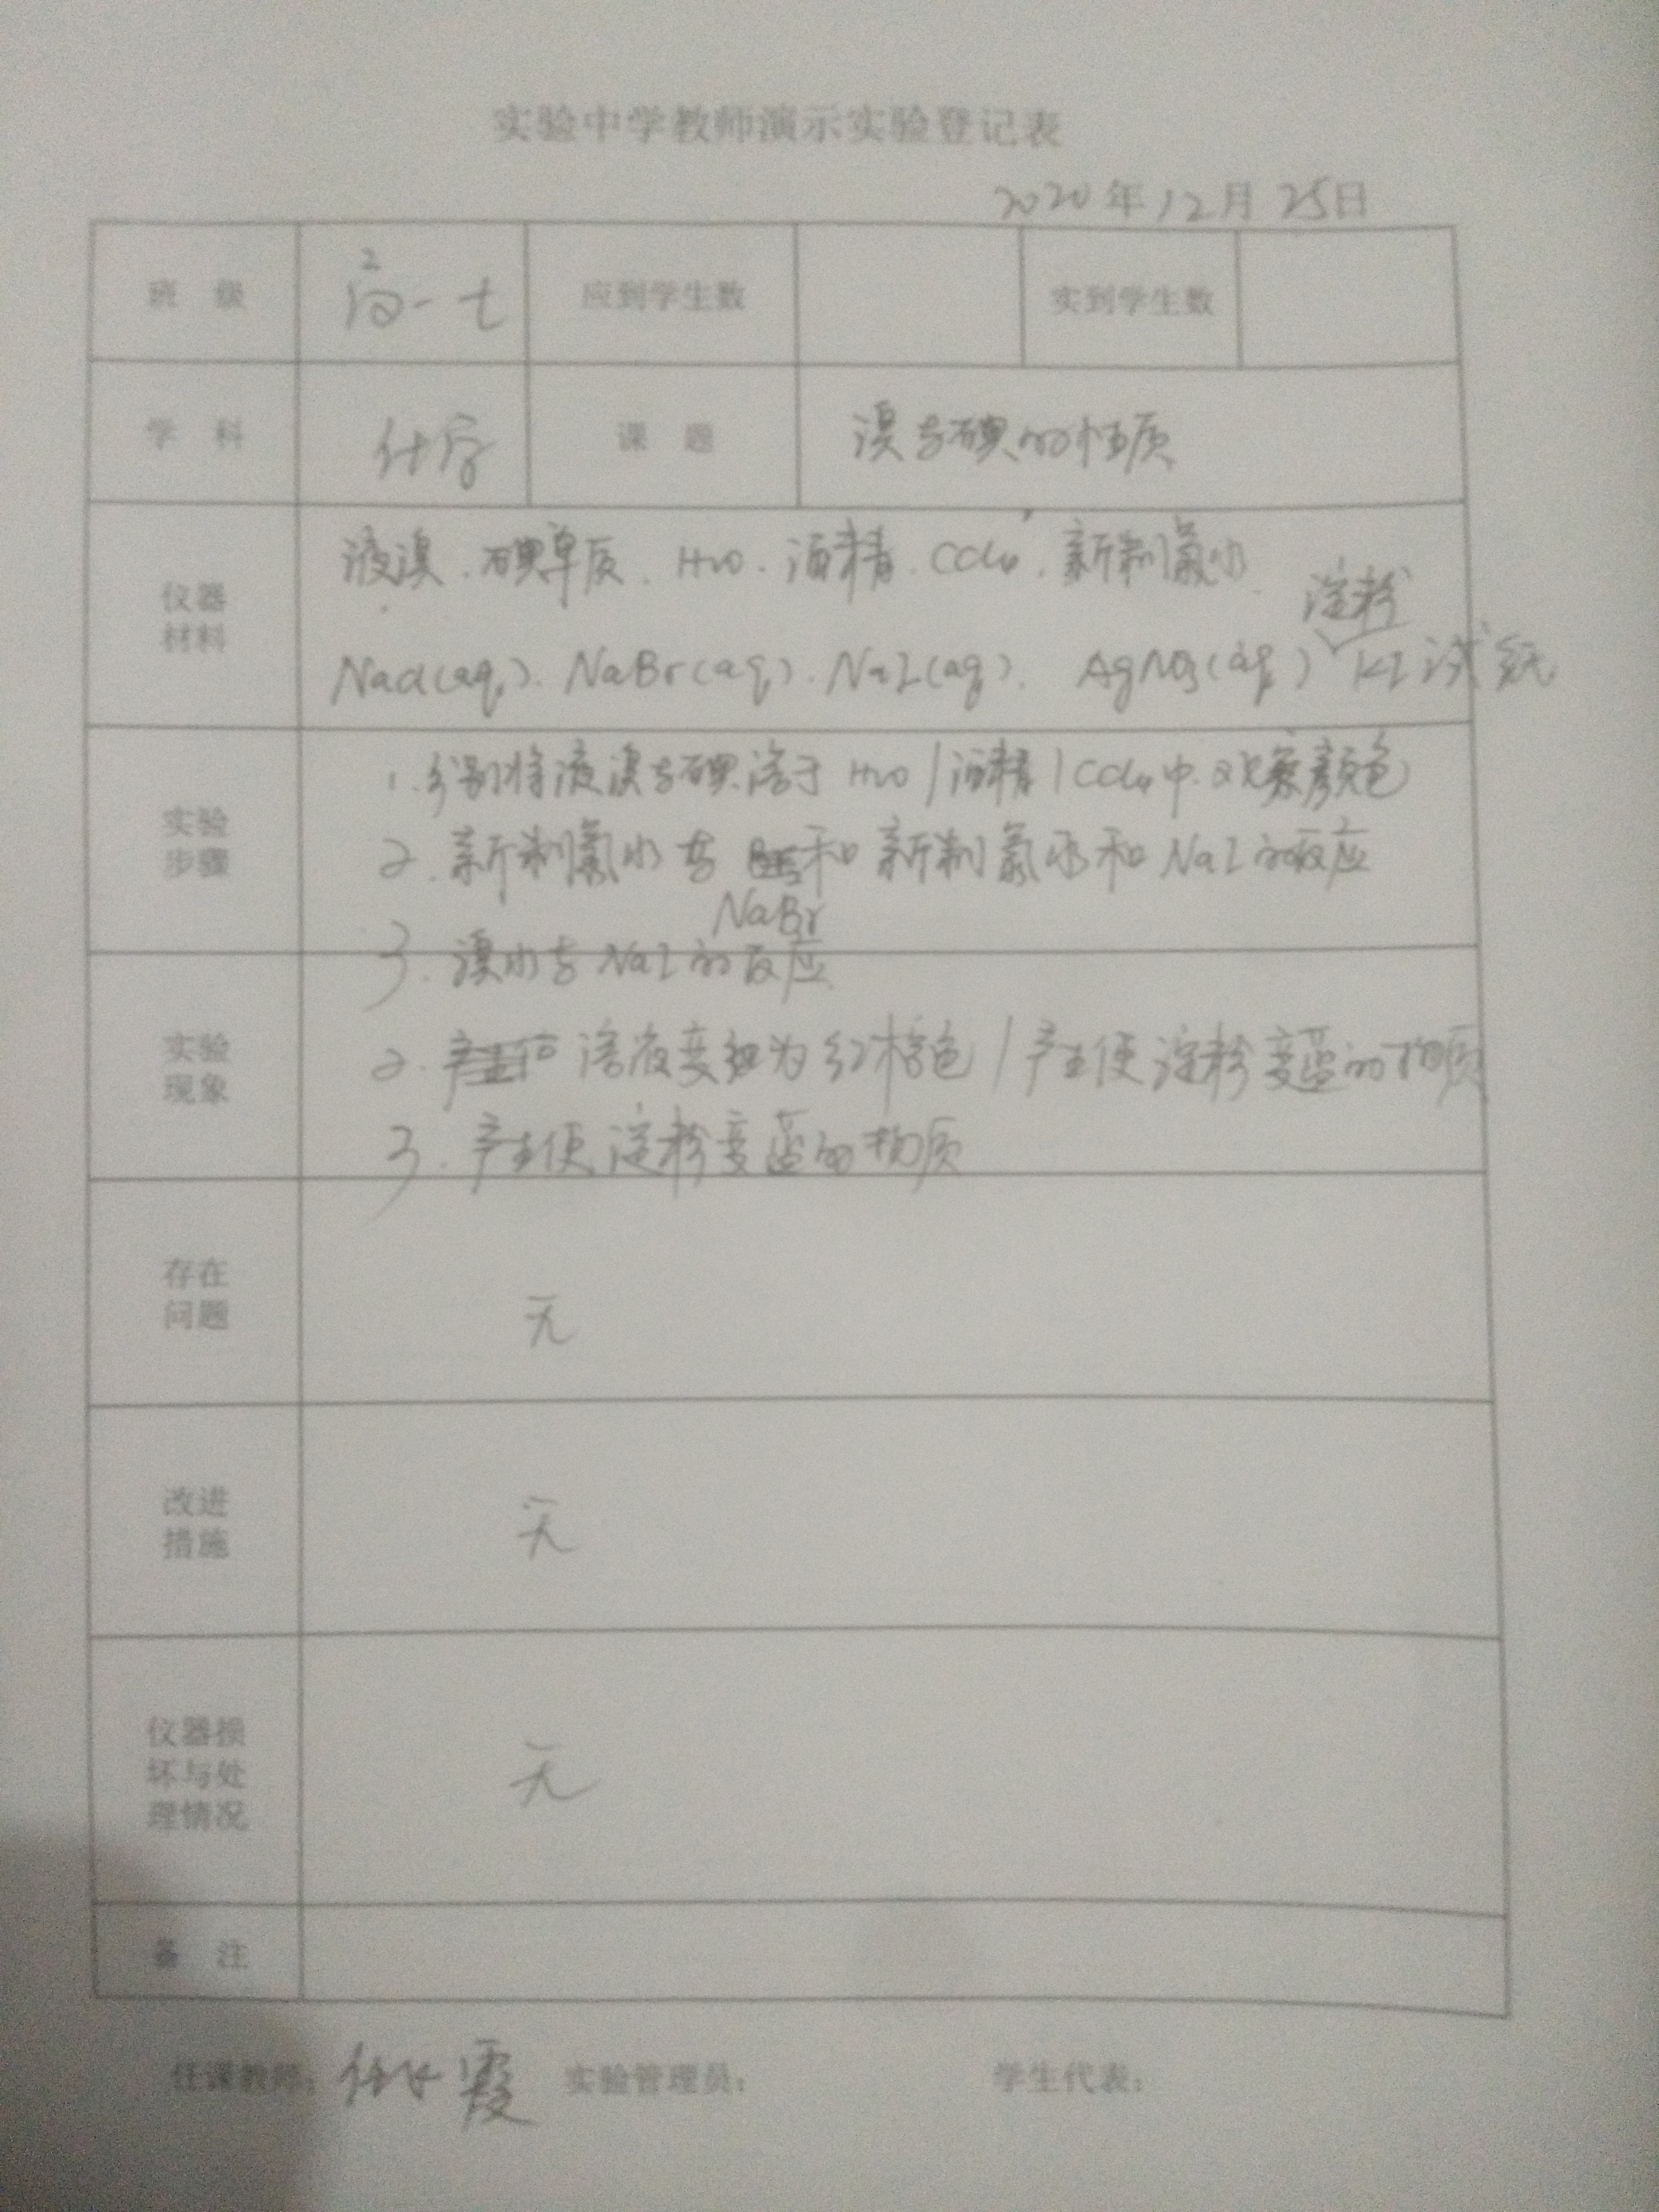 实验中学教师演示实验登记表
2020年12月25日
班 级 高一七 应到学生数 实到学生数
学 科 化学 课 题 溴与碘的性质
仪器材料
液溴、碘单质、H2O、酒精、CCl4、新制氯水、
淀粉
NaCl(aq)、NaBr(aq)、NaI(aq)、AgNO3(aq) KI试纸
实验步骤
1.分别将液溴与碘溶于H2O/酒精/CCl4中.观察颜色
2.新制氯水与 和新制氯水和NaI的反应
NaBr
3.溴水与NaI的反应
实验现象
2. 溶液变 为红棕色/产生使淀粉变蓝的物质
3.产生使淀粉变蓝的物质
存在问题
无
改进措施
无
仪器损坏与处理情况
无
备 注
任课教师: 霞 实验管理员: 学生代表: